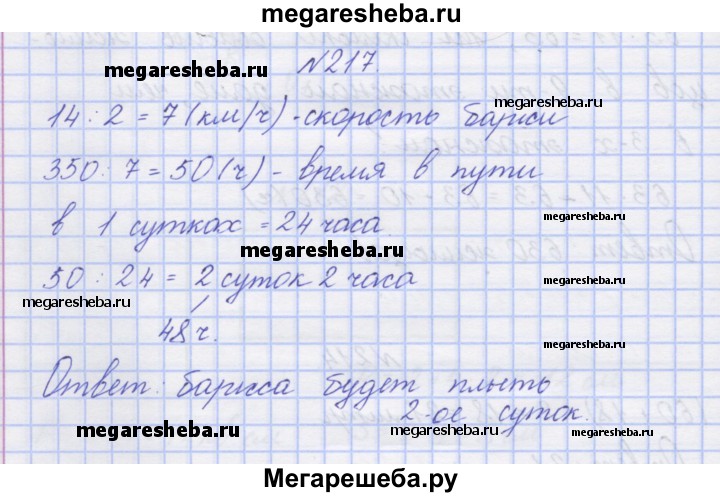 megaresheba.ru
№217.
megaresheba.ru megaresheba.ru
14 : 2 = 7 (км/ч) - скорость баржи
350 : 7 = 50 (ч) - время в пути
в 1 сутках = 24 часа.
megaresheba.ru
50 : 24 = 2 суток 2 часа
megaresheba.ru megaresheba.ru
48 ч.
Ответ: баржа будет плыть
2-ое суток.
megaresheba.ru megaresheba.ru
Мегарешеба.ру